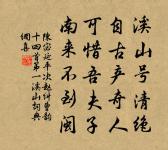 溪山号清绝
自古产奇人
可惜吾夫子
南来不到闽
陈宓延平次赵纠曹韵
十四首第一溪山词典
网喜